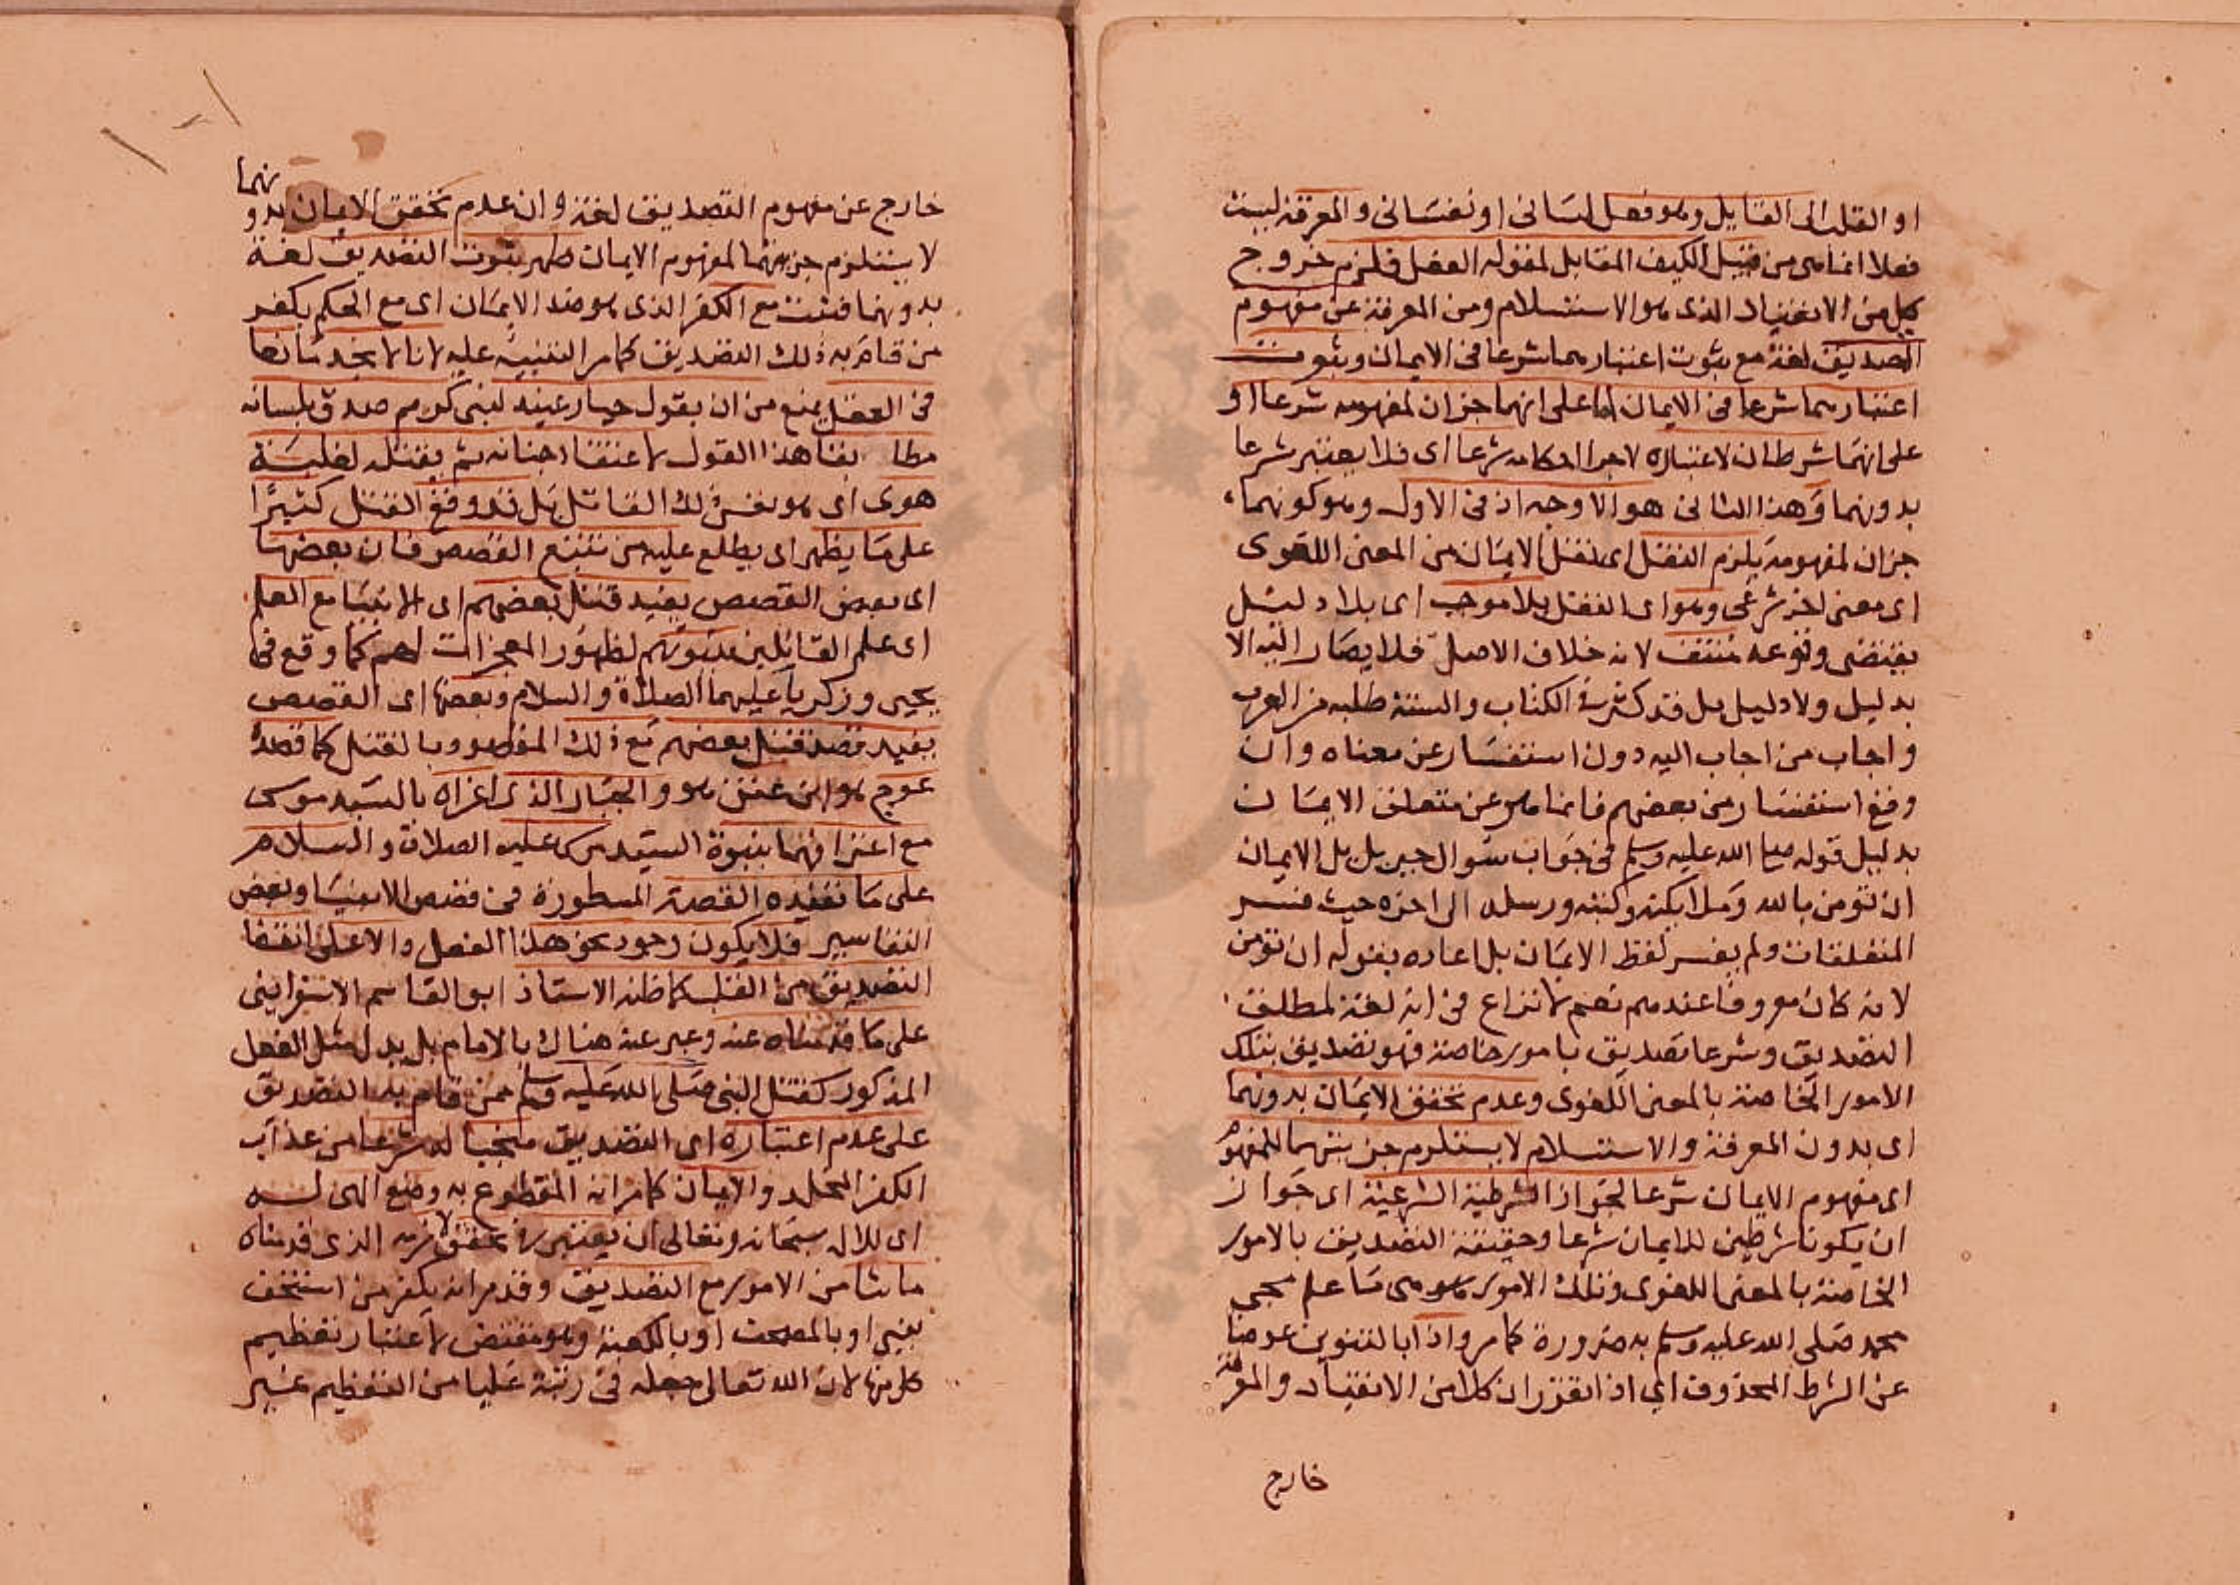 او القلب الى القايل وهو فعل لسانى او نفسانى والمعرفة ليست
فعلا انما هى من قبيل الكيف المقابل لمقوله الفعل فلزم خروج
كل من الانقياد الذى هو الاستسلام ومن المعرفة عن مفهوم
التصديق لغة مع ثبوت اعتبارهما شرعا فى الايمان وثبوت
اعتبارهما شرعا فى الايمان اما على انهما جزان لمفهومه شرعا او
على انهما شرطان لاعتباره لاجرا احكامه شرعا اى فلا يعتبر شرعا
بدونهما وهذا الثانى هو الاوجه اذ فى الاول وهو كونهما
جزان لمفهومه يلزم النقل اى نقل الايمان من المعنى اللغوى
اى معنى اخر شرعى وهو اى النقل بلا موجب اى بلا دليل
يقتضى وقوعه منتف لانه خلاف الاصل فلا يصار اليه الا
بدليل ولا دليل بل قد كثر فى الكتاب والسنة طلبه من العرب
واجاب من اجاب اليه دون استفسار عن معناه وان
وقع استفسار من بعضهم فانما هو عن متعلق الايمان
بدليل قوله صلى الله عليه وسلم فى جواب سوال جبريل بل الايمان
ان تومن بالله وملايكته وكتبه ورسله الى اخره حيث فسر
المتعلقات ولم يفسر لفظ الايمان بل اعاده بقوله ان تومن
لانه كان معروفا عندهم نعم لا نزاع فى انه لغة لمطلق
التصديق وشرعا تصديق بامور خاصة فهو تصديق بتلك
الامور الخاصة بالمعنى اللغوى وعدم تحقق الايمان بدونهما
اى بدون المعرفة والاستسلام لا يستلزم جزيتهما للمفهوم
اى مفهوم الايمان شرعا لجواز الشرطية الشرعية اى جواز
ان يكونا شرطين للايمان شرعا وحقيقة التصديق بالامور
الخاصة بالمعنى اللغوى وتلك الامور هى ما علم مجى
محمد صلى الله عليه وسلم به ضرورة كما مر واذا بالتنوين عوضا
عن الشرط المحذوف اي اذا تقرر ان كلا من الانقياد والمعرفة
خارج
خارج عن مفهوم التصديق لغة وان عدم تحقق الايمان بدونهما
لا يستلزم جزيتهما لمفهوم الايمان ظهر ثبوت التصديق لغة
بدونهما فثبت مع الكفر الذى هو ضد الايمان اى مع الحكم بكفر
من قام به ذلك التصديق كما مر التنبيه عليه لانا لا نجد مانعا
فى العقل يمنع من ان يقول جبار عنيد لنبى كريم صدق بلسانه
مطابقا هذا القول لاعتقاد جنانه ثم يقتله لغلبة
هوى اى هو نفس ذلك القاتل بل قد وقع القتل كثيرًا
على ما يظهر اى يطلع عليه من تتبع القصص فان بعضها
اى بعض القصص يفيد قتل بعضهم اى الانبيا مع العلم
اى علم القاتلين بنبوتهم لظهور المعجزات لهم كما وقع فى
يحيى وزكريا عليهما الصلاة والسلام وبعضها اى القصص
يفيد قصد قتل بعضهم مع ذلك المقصود بالقتل كما قصد
عوج هو ابن عنق هو والجبار الذى اغراه بالسيد موسى
مع اعترافهما بنبوة السيد موسى عليه الصلاة والسلام
على ما تفيده القصة المسطورة فى قصص الانبيا وبعض
التفاسير فلا يكون وجود نحو هذا الفعل دالا على انتفا
التصديق من القلب كما ظنه الاستاذ ابو القاسم الاسفراينى
على ما قدمناه عنه وعبر عنه هناك بالامام بل يدل مثل الفعل
المذكور كقتل النبى صلى الله عليه وسلم ممن قام به التصديق
على عدم اعتباره اى التصديق منجيا له شرعا من عذاب
الكفر المخلد والايمان كما مر انه المقطوع به وضع الهى له
اى للاله سبحانه وتعالى ان يعتبر فى تحقق لازمه الذى قدمناه
ما شا من الامور مع التصديق وقد مر انه يكفر من استخف
بنبى او بالمصحف او بالكعبة وهو مقتض لاعتبار تعظيم
كل منها لان الله تعالى جعله فى رتبة عليا من التعظيم غير